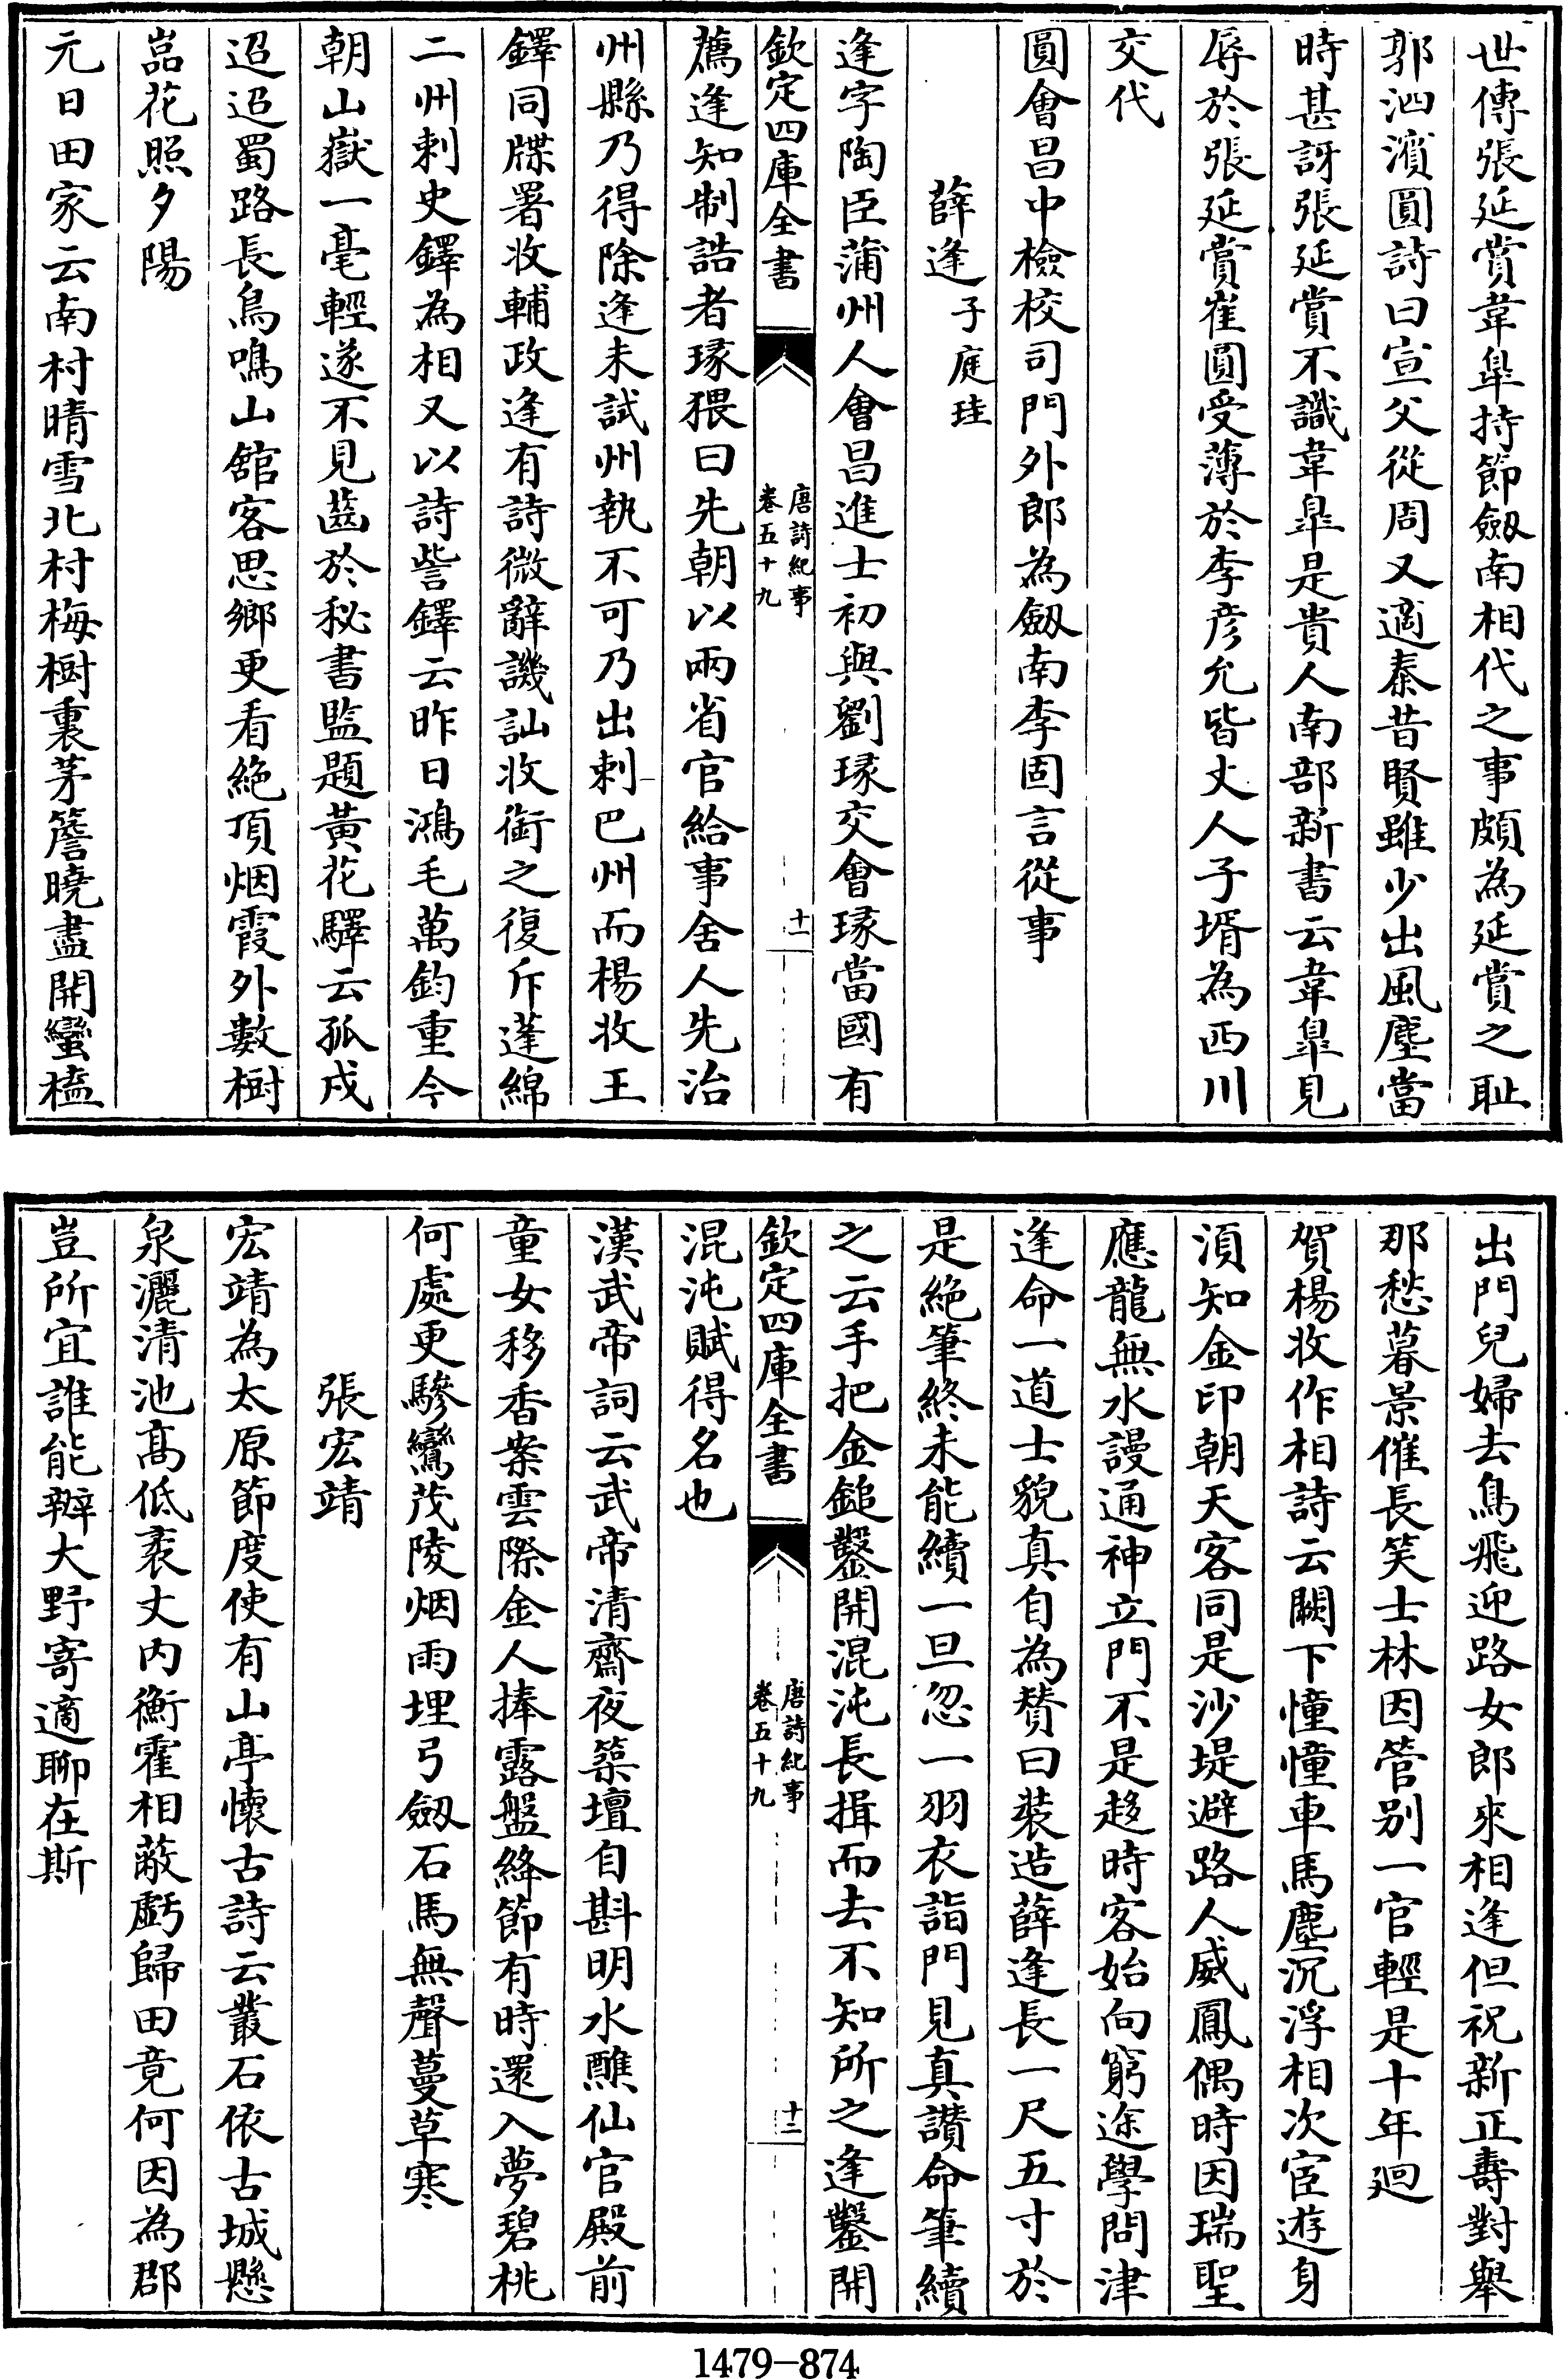 世傳張延賞韋臯持節劔南相代之事頗為延賞之耻
郭泗濱圓詩曰宣父從周又適秦昔賢雖少出風塵當
時甚訝張延賞不識韋臯是貴人南部新書云韋臯見
辱於張延賞崔圓受薄於李彦允皆丈人子壻為西川
交代
圓會昌中檢校司門外郎為劔南李固言從事
薛逢子庭珪
逢字陶臣蒲州人會昌進士初與劉瑑交會瑑當國有
欽定四庫全書
唐詩紀事
卷五十九
十一
薦逢知制誥者瑑猥曰先朝以兩省官給事舍人先治
州縣乃得除逢未試州執不可乃出刺巴州而楊收王
鐸同牒署收輔政逢有詩微辭譏訕收銜之復斥蓬綿
二州刺史鐸為相又以詩訾鐸云昨日鴻毛萬鈞重今
朝山嶽一毫輕遂不見齒於秘書監題黃花驛云孤戍
迢迢蜀路長鳥鳴山舘客思鄉更看絶頂烟霞外數樹
嵓花照夕陽
元日田家云南村晴雪北村梅樹裏茅簷曉盡開蠻榼
出門兒婦去鳥飛迎路女郎來相逢但祝新正壽對舉
那愁暮景催長笑士林因管别一官輕是十年廻
賀楊收作相詩云闕下憧憧車馬塵沉浮相次宦遊身
湏知金印朝天客同是沙堤避路人威鳳偶時因瑞聖
應龍無水謾通神立門不是趍時客始向窮途學問津
逢命一道士貌真自為賛曰裝造薛逢長一尺五寸於
是絶筆終未能續一旦忽一羽衣詣門見真讚命筆續
之云手把金鎚鑿開混沌長揖而去不知所之逢鑿開
欽定四庫全書
唐詩紀事
卷五十九
十二
混沌賦得名也
漢武帝詞云武帝清齋夜築壇自斟明水醮仙官殿前
童女移香案雲際金人捧露盤絳節有時還入夢碧桃
何處更驂鸞茂陵烟雨埋弓劔石馬無聲蔓草寒
張宏靖
宏靖為太原節度使有山亭懷古詩云叢石依古城懸
泉灑清池髙低袤丈内衡霍相蔽虧歸田竟何因為郡
豈所宜誰能辨大野寄適聊在斯
1479-874